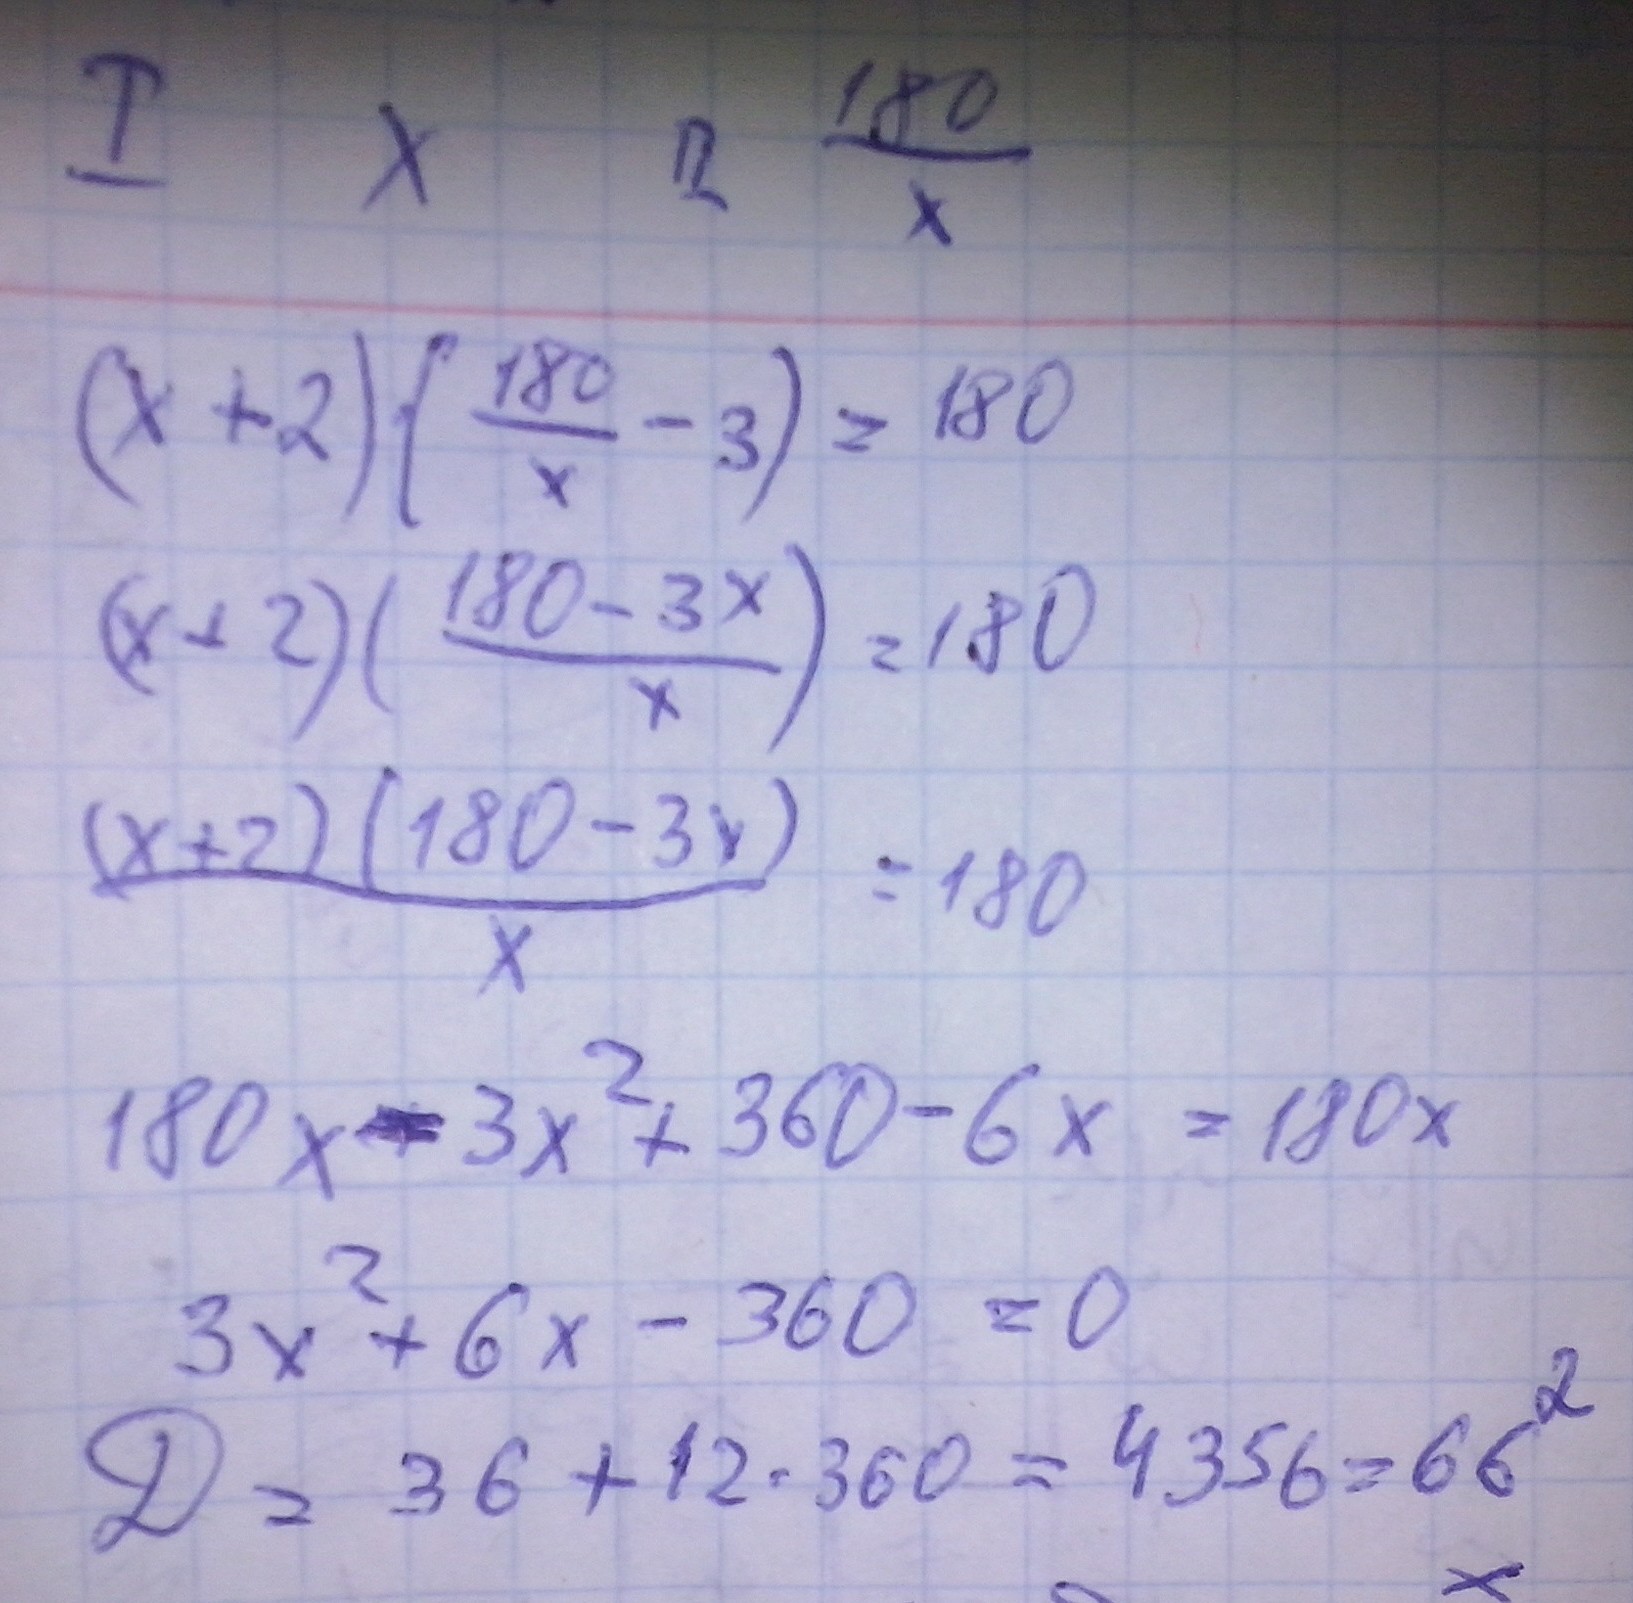 I x 12 180/x
(x+2)(180/x - 3) = 180
(x+2)((180-3x)/x) = 180
(x+2)(180-3x)/x = 180
180x - 3x² + 360 - 6x = 180x
3x² + 6x - 360 = 0
D = 36 + 12·360 = 4356 = 66²
x